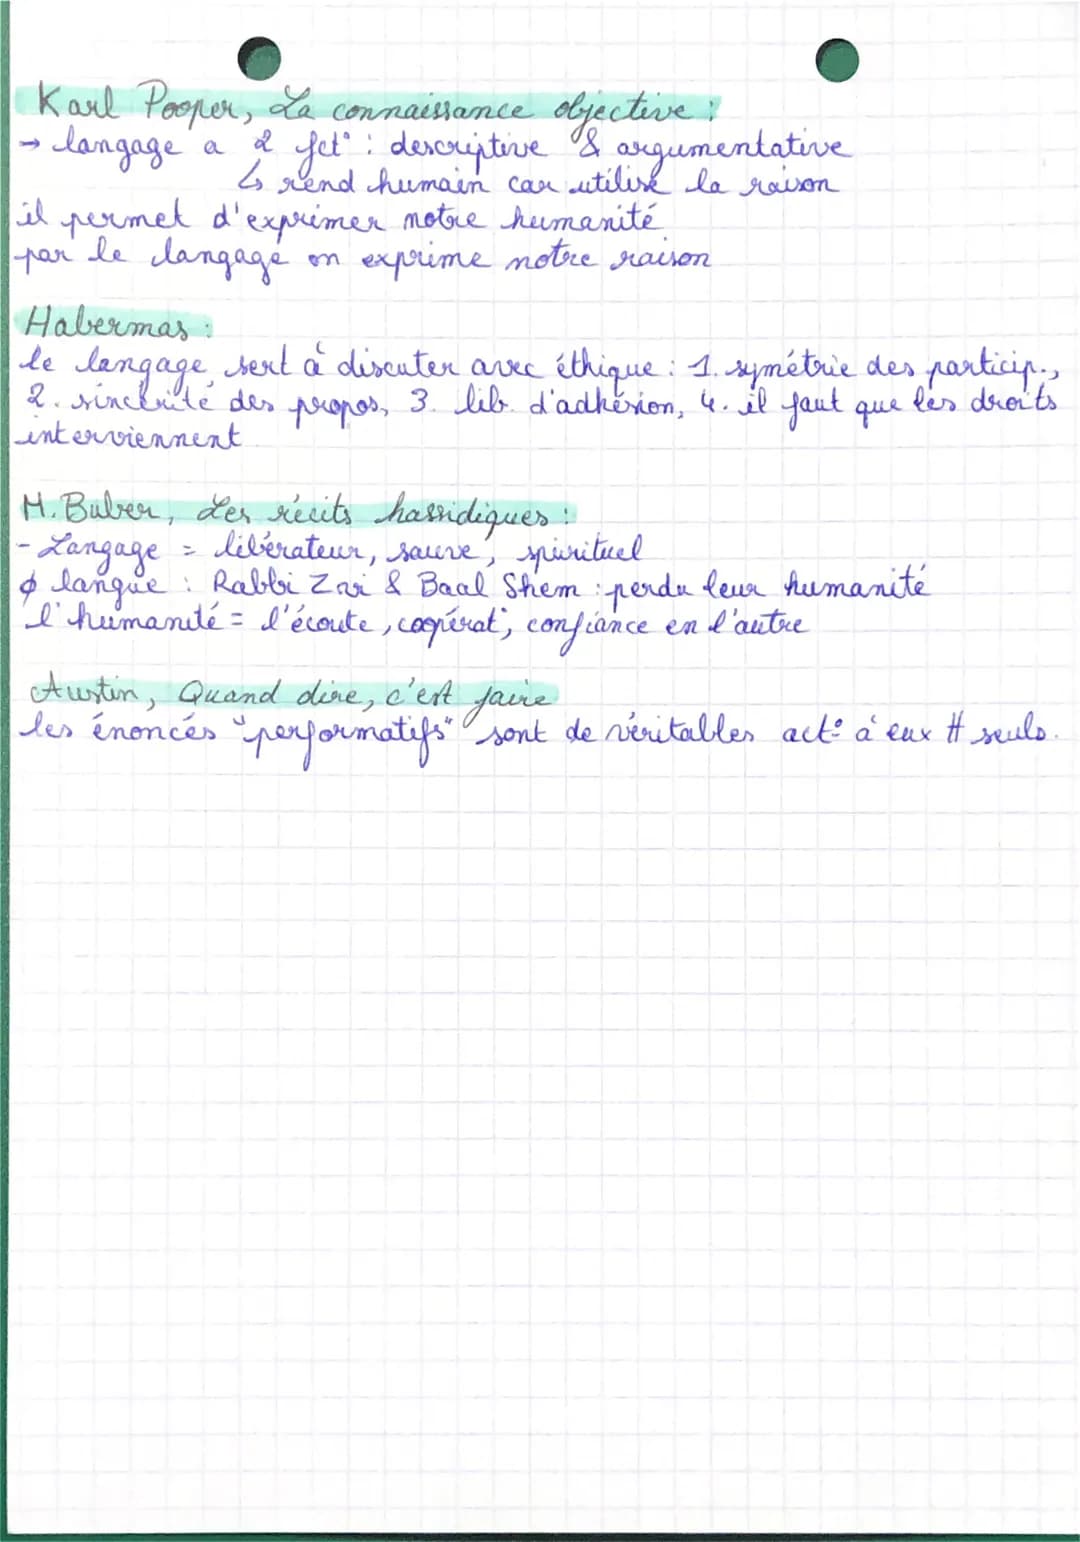 Karl Pooper, La connaissance objective :
→ langage a 2 fct° : descriptive & argumentative
↳ rend humain car utilise la raison
il permet d'exprimer notre humanité
par le langage on exprime notre raison
Habermas :
le langage sert à discuter avec éthique : 1. symétrie des particip.,
2. sincérité des propos, 3. lib. d'adhésion, 4. il faut que les droits
interviennent
M. Buber, Les récits hassidiques :
- Langage = libérateur, sauve, spirituel
∅ langue : Rabbi Zvi & Baal Shem : perdu leur humanité
l'humanité = l'écoute, coopérat°, confiance en l'autre
Austin, Quand dire, c'est faire
les énoncés "performatifs" sont de véritables act° à eux # seuls.